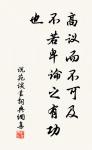 高议而不可及
不若卑论之有功
也
说苑谈丛刘向阅集